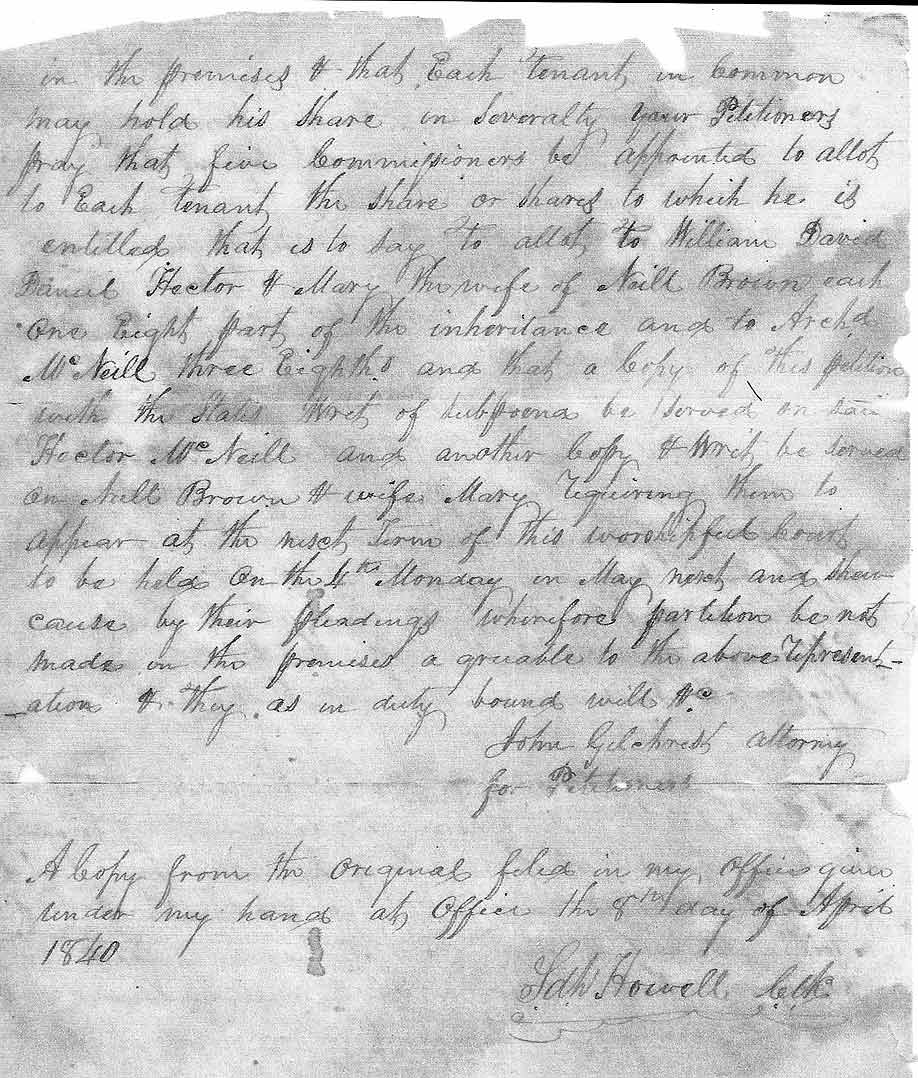 in the premises & that Each tenant in Common
may hold his share in Severalty your Petitioners
pray that five Commissioners be appointed to allot
to Each tenant the share or shares to which he is
entitled that is to say to allot to William David
Daniel Hector & Mary the wife of Neill Brown each
One Eight part of the inheritance and to Archd
McNeill three Eighths and that a Copy of this petition
with the States Writ of Subpoena be served on said
Hector McNeill and another Copy & Writ be served
on Neill Brown & wife Mary requiring them to
appear at the next Term of this worshipful Court
to be held On the 4th Monday in May next and shew
cause by their pleadings wherefore partition be not
made in the premises a greable to the above represent_
_ation & they as in duty bound will &c
John Gilchrist attorney
for Petitioners
A Copy from the Original filed in my Office given
under my hand at Office the 8th day of April
1840
Howell Clk